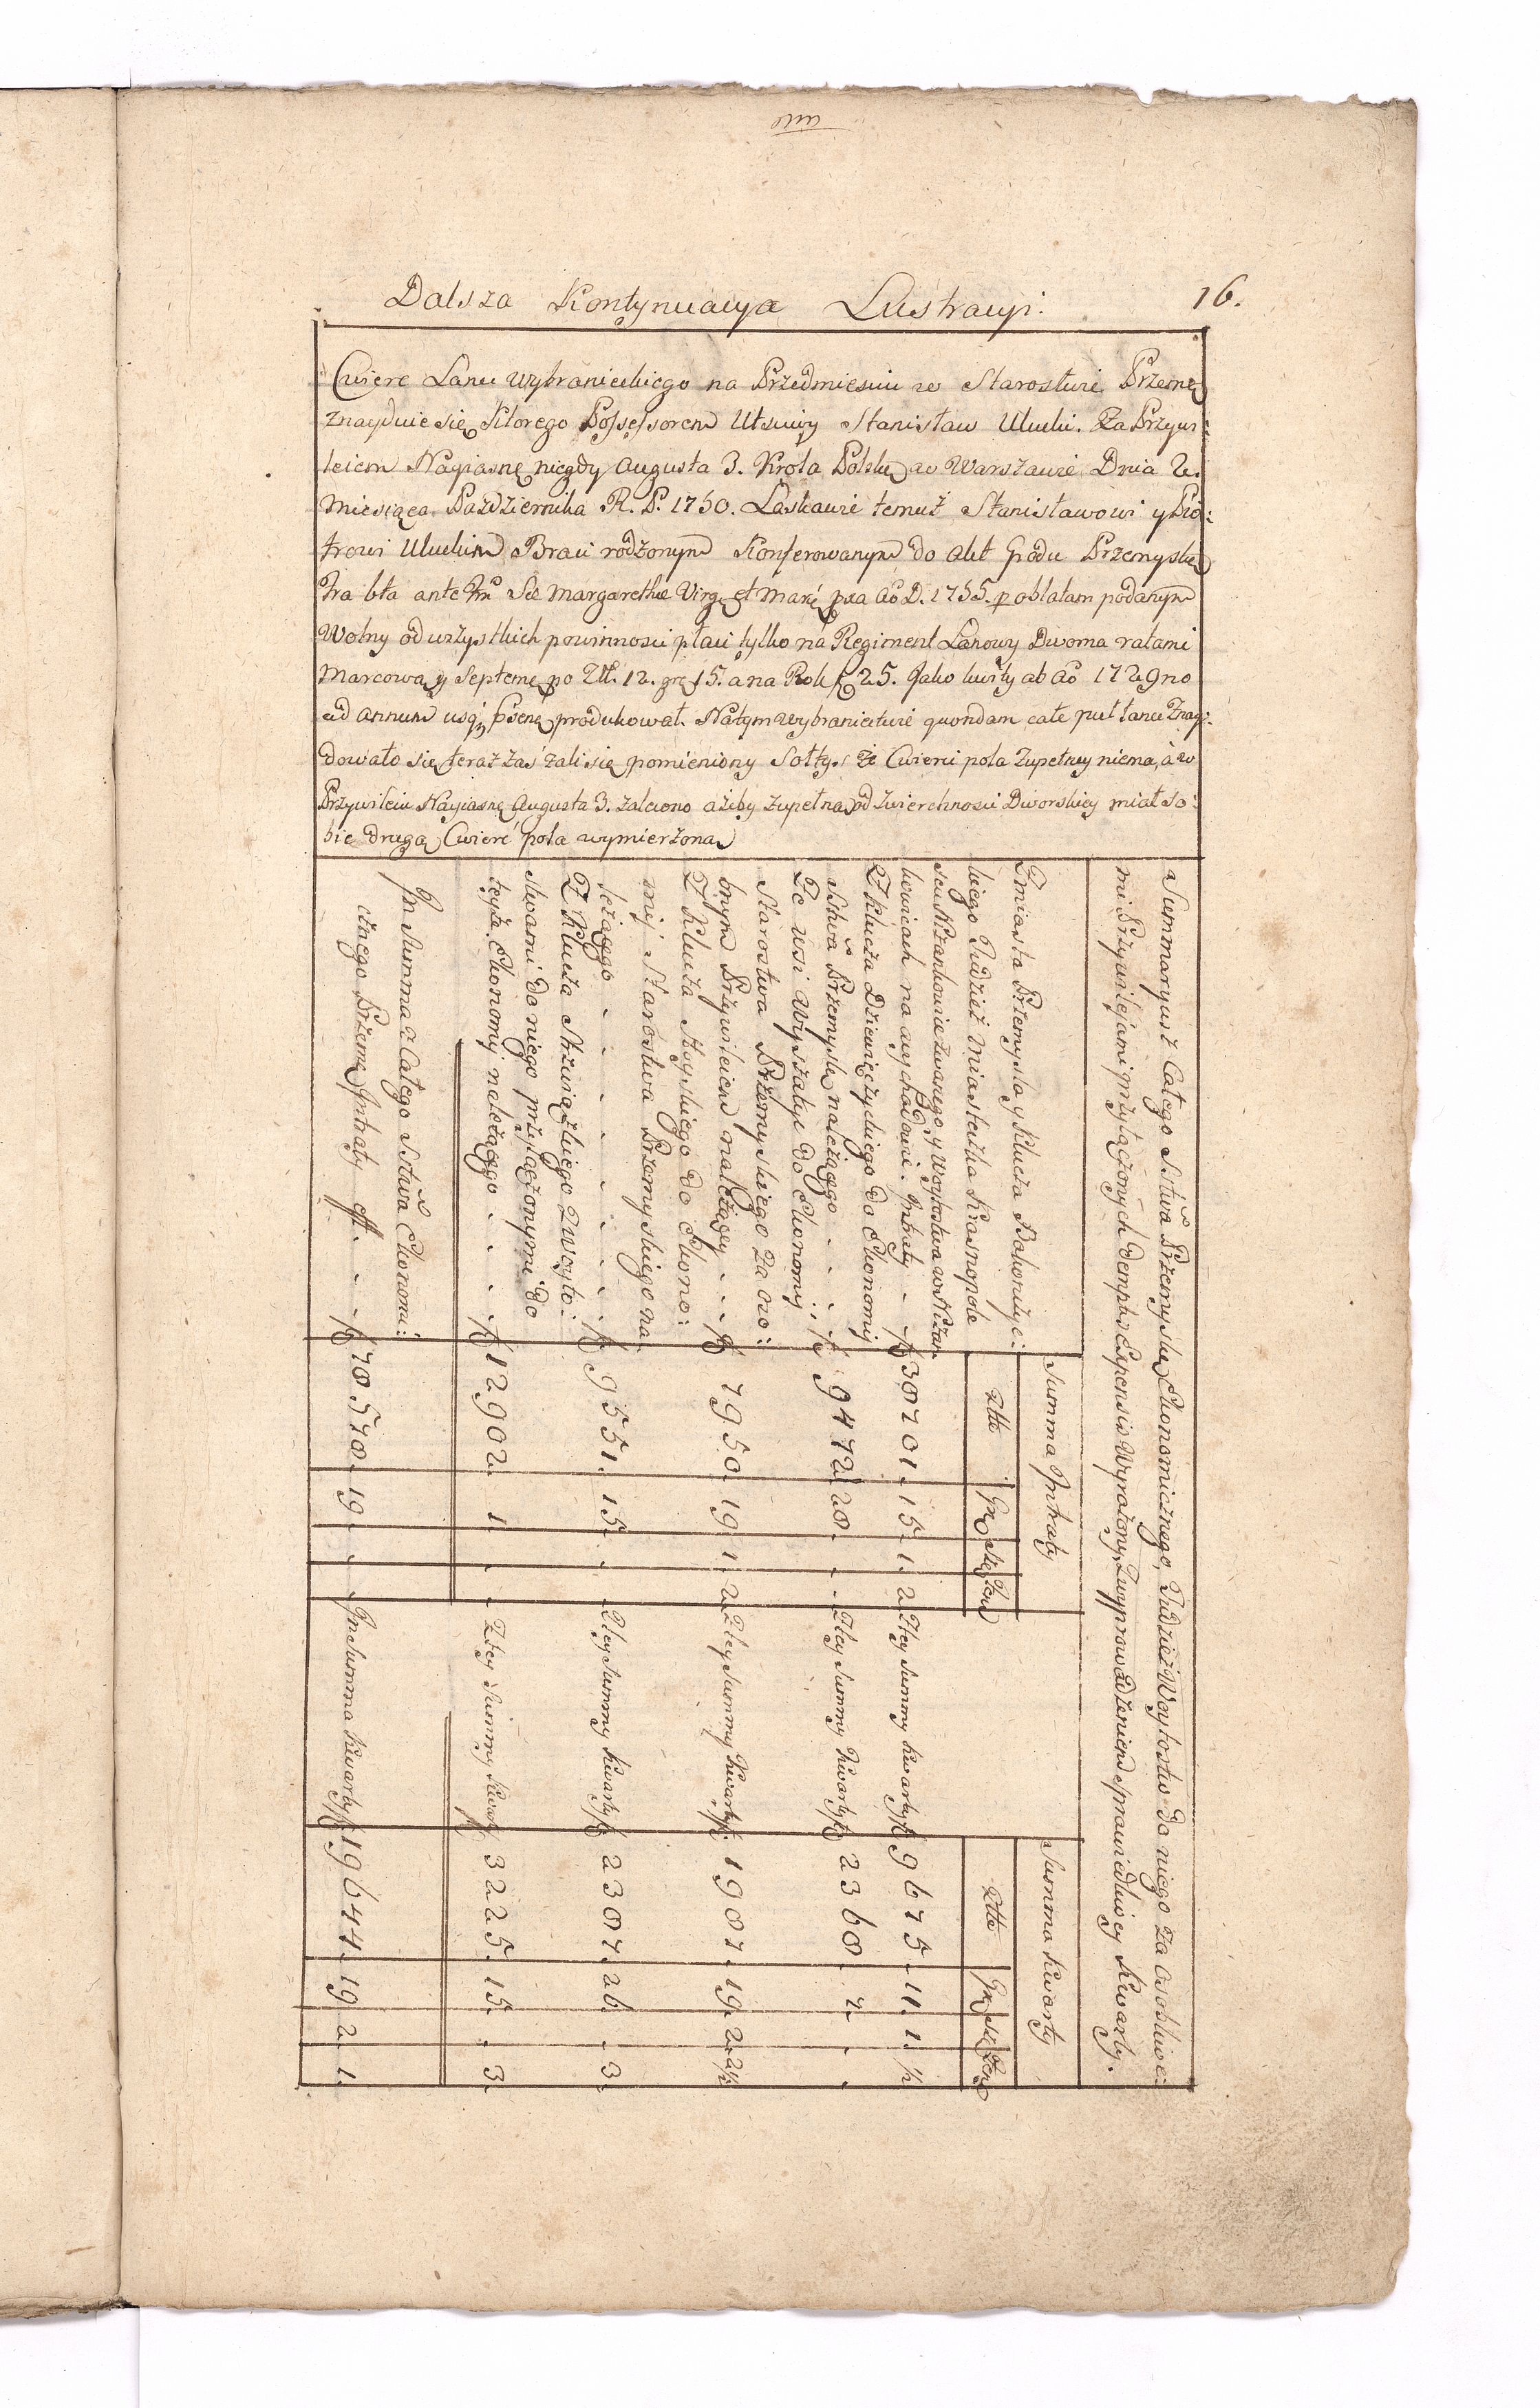 Dalsza Kontynuacya Lustracyi. 16.
Cwierc Łanu wybranieckiego na Przedmiesciu w Starostwie Przems
znayduie się, Ktorego Possessorem Utsciwy Stanisław Ulucki. Za Przywi:
leiem Nayiasnę niegdy Augusta 3. Krola Polskę w Warszawie Dnia 2.
Miesiąca Pazdziernika R. P. 1750. Łaskawie temuż Stanisławowi y Pio:
trowi Uluckim Braci rodzonym Konferowanym do Akt Grodu Przemyskę
fra bta ante Sae Margarethae Virg. et Mar. pxa Ao D. 1755. p oblatam podanym
Wolny od wszystkich powinnosci płaci tylko na Regiment Łanowy Dwoma ratami
Marcową y Septemę po Zł. 12. gr. 15. a na Rok f 25. Jako kwity ab Ao 1729no
ad annum usq. psenę produkował. Na tym wybraniectwie quondam całe puł łanu Znay:
dowało się, teraz zaś żali się pomieniony Sołtys że Cwierci pola zupełney niema, a w
Przywileiu Nayiasnę Augusta 3. zalecono ażeby zupełną od zwierchnosci Dworskiey miał so:
bie drugą Cwierć pola wymierzoną
Summaryusz Całego Sstwa Przemyskę Ekonomicznego, Tudzież Woytostw do niego za osobliwe:
mi Przywilejami przyłączonych dempto Expensis Wyrażony, z wyprowadzeniem sprawiedliwey Kwarty.
Summa Intraty Summa Kwarty
Złłte Gr Sz Den Złłte Gr Sz Den
Z miasta Przemysla y Klucza Bakonczyc:
kiego Tudzież Miasteczka Krasnopole
seu Krzankowice zwanego, y Woytostwa w Krzan
kowicach na wychowani. Intraty - f 38701. 15. 1. 2 Z tey Summy Kwarty f 9675. 11. 1. ½
Z Klucza Dziewięczyckiego do Ekonomij
Sstwa Przemyskę należącego . . . f 9472. 28. . . Z tey Summy Kwarty f 2368. 7. . .
Ze wsi Wyszatyc do Ekonomij
Starostwa Przemyskiego za oso:
bnym Przywileiem należącey . . f 7950. 19. 1. 2. Z tey Summy Kwarty f 1987. 19. 2. 2½
Z Klucza Stoyskiego do Ekono:
mij Starostwa Przemyskiego na
leżącego . . . . . f 9551. 15. . . Z tey Summy Kwarty f 2387. 26. . 3.
Z Klucza Strwiązkiego z woyto:
stwami do niego przyłączonymi do
teyże Ekonomij należącego . . . f 12902. 1. . . Z tey Summy Kwarty f 3225. 15. . 3.
In Summa z Całego Sstwa Ekonomi:
cznego Przems Intraty eff. . . f 78578. 19. . . In Summa Kwarty f 19644. 19. 2. 1.